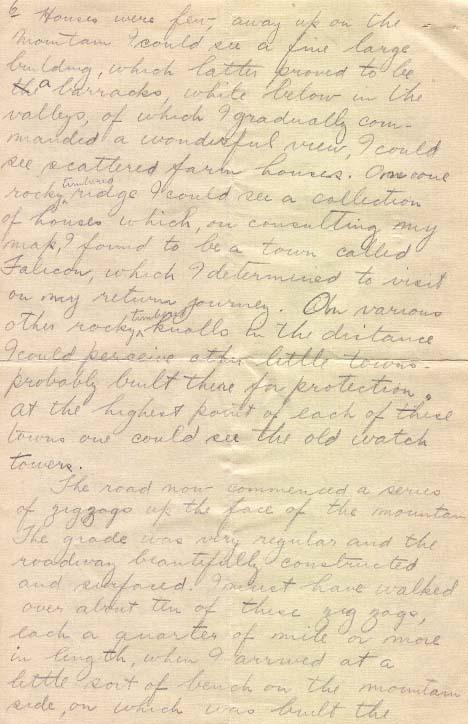 6 Houses were few, away up on the
mountain I could see a fine large
building, which latter proved to be
the a barracks, while below in the
valleys, of which I gradually com-
manded a wonderful view, I could
see scattered farm houses. On one
rocky timbered ridge I could see a collection
of houses which, on consulting my
map, I found to be a town called
Falicon, which I determined to visit
on my return journey. On various
other rocky timbered knolls in the distance
I could perceive other little towns-
probably built there for protection.
At the highest point of each of these
towns one could see the old watch
towers.
The road now commenced a series
of zigzags up the face of the mountain
The grade was very regular and the
roadway beautifully constructed
and surfaced. I must have walked
over about ten of these zig zags,
each a quarter of mile or more
in length, when I arrived at a
little sort of bench on the mountain
side, on which was built the